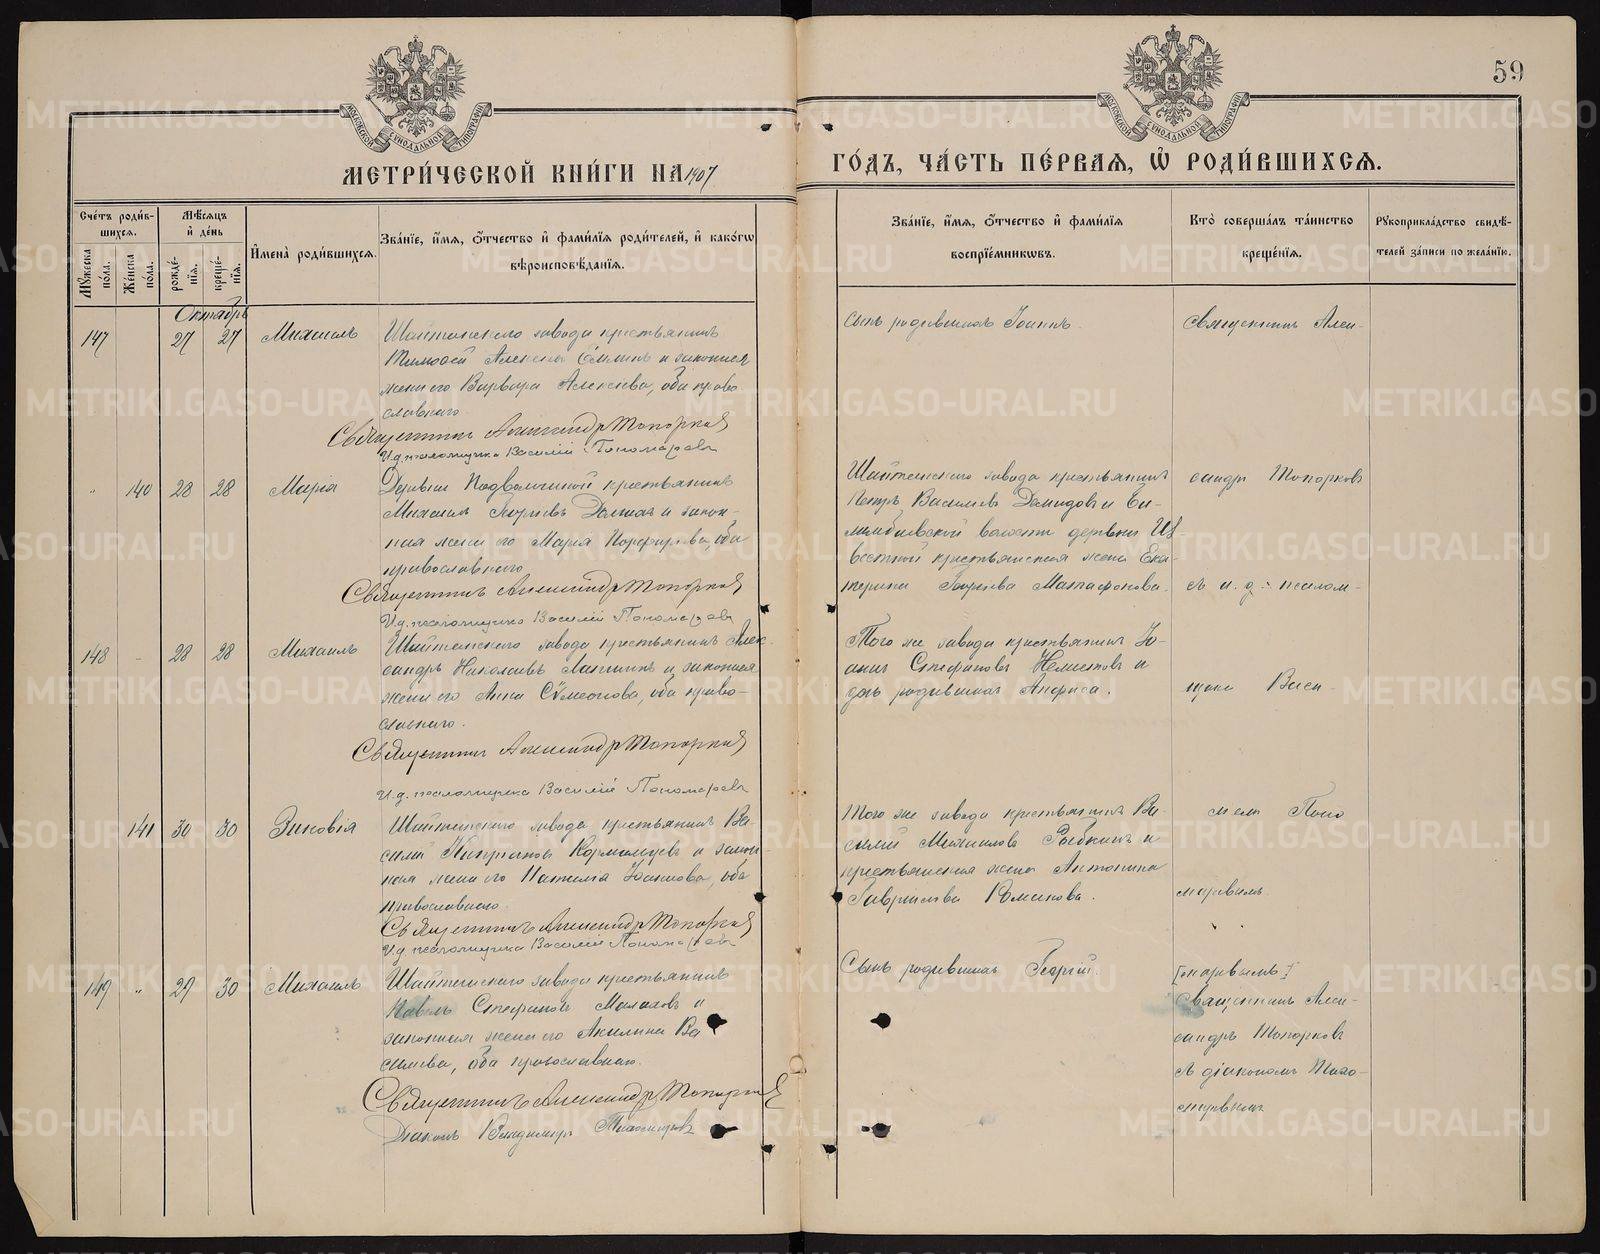 59
МОСКОВСКОЙ СѴНОДАЛЬНОЙ ТИПОГРАФІИ
МОСКОВСКОЙ СѴНОДАЛЬНОЙ ТИПОГРАФІИ
МЕТРИ́ЧЕСКОЙ КНИ́ГИ НА 1907
ГО́ДЪ, ЧА́СТЬ ПЕ́РВАѦ, Ѡ҆ РОДИ́ВШИХСѦ.
Сче́тъ роди́в-
шихсѧ.
Мꙋ́жеска по́ла.
Же́нска по́ла.
Мѣ́сѧцъ
и҆ де́нь
рожде́-
нїѧ.
креще́-
нїѧ.
И҆мена̀ роди́вшихсѧ.
Зва́нїе, и҆́мѧ, ѻ҆́тчество и҆ фами́лїѧ роди́телей, и҆ како́гѡ
вѣроисповѣ́данїѧ.
Зва́нїе, и҆́мѧ, ѻ҆́тчество и҆ фами́лїѧ
воспрїе́мникѡвъ.
Кто̀ соверша́лъ та́инство
креще́нїѧ.
Рꙋкоприкла́дство свидѣ́-
телей за́писи по жела́нїю.
Октябрь
147
27 27
Михаилъ
Шайтанскаго завода крестьянинъ
Тимоѳей Алексѣевъ и законная
жена его Варвара Алексѣева, оба право-
славнаго.
Священникъ Александръ Топорковъ
И.д. псаломщика Василій Пономаревъ
Сынъ родившихъ Іоаннъ.
Священникъ Алек-
" 140 28 28
Марія
Деревни Подволошной крестьянинъ
Михаилъ Георгіевъ и закон-
ная жена его Марія Порфирьева, оба
православнаго
Священникъ Александръ Топорковъ
И.д. псаломщика Василій Пономаревъ
Шайтанскаго завода крестьянинъ
Петръ Васильевъ Демидовъ и
волости деревни Из-
вестной крестьянская жена Ека-
терина Георгіева Матафонова.
сандръ Топорковъ
съ и. д. псалом-
148 - 28 28
Михаилъ
Шайтанскаго завода крестьянинъ Алек-
сандръ Николаевъ и законная
жена его Анна Сѵмеонова, оба право-
славнаго.
Священникъ Александръ Топорковъ
И.д. псаломщика Василій Пономаревъ
Того же завода крестьянинъ Іо-
аннъ Стефановъ и
дочь родившихъ Анфиса.
щика Васи-
141 30 30
Зиновія
Шайтанскаго завода крестьянинъ Ва-
силій Кипріановъ Кормильцевъ и закон-
ная жена его Наталія Іоаннова, оба
православнаго.
Священникъ Александръ Топорковъ
И.д. псаломщика Василій Пономаревъ
Того же завода крестьянинъ Ва-
силій Михаиловъ Рябкинъ и
крестьянская жена Антонина
Гавріилова Романова.
ліем Поно
маревымъ.
149 " 29 30
Михаилъ
Шайтанскаго завода крестьянинъ
Павелъ Стефановъ Малаховъ и
законная жена его Акилина Ва-
сильева, оба православнаго.
Священникъ Александръ Топорковъ
Діаконъ Владимиръ Тихомировъ
Сынъ родившихъ Георгій.
[маревымъ]
Священникъ Алек-
сандръ Топорковъ
съ діакономъ Тихо-
мировымъ
METRIKI.GASO-URAL.RU